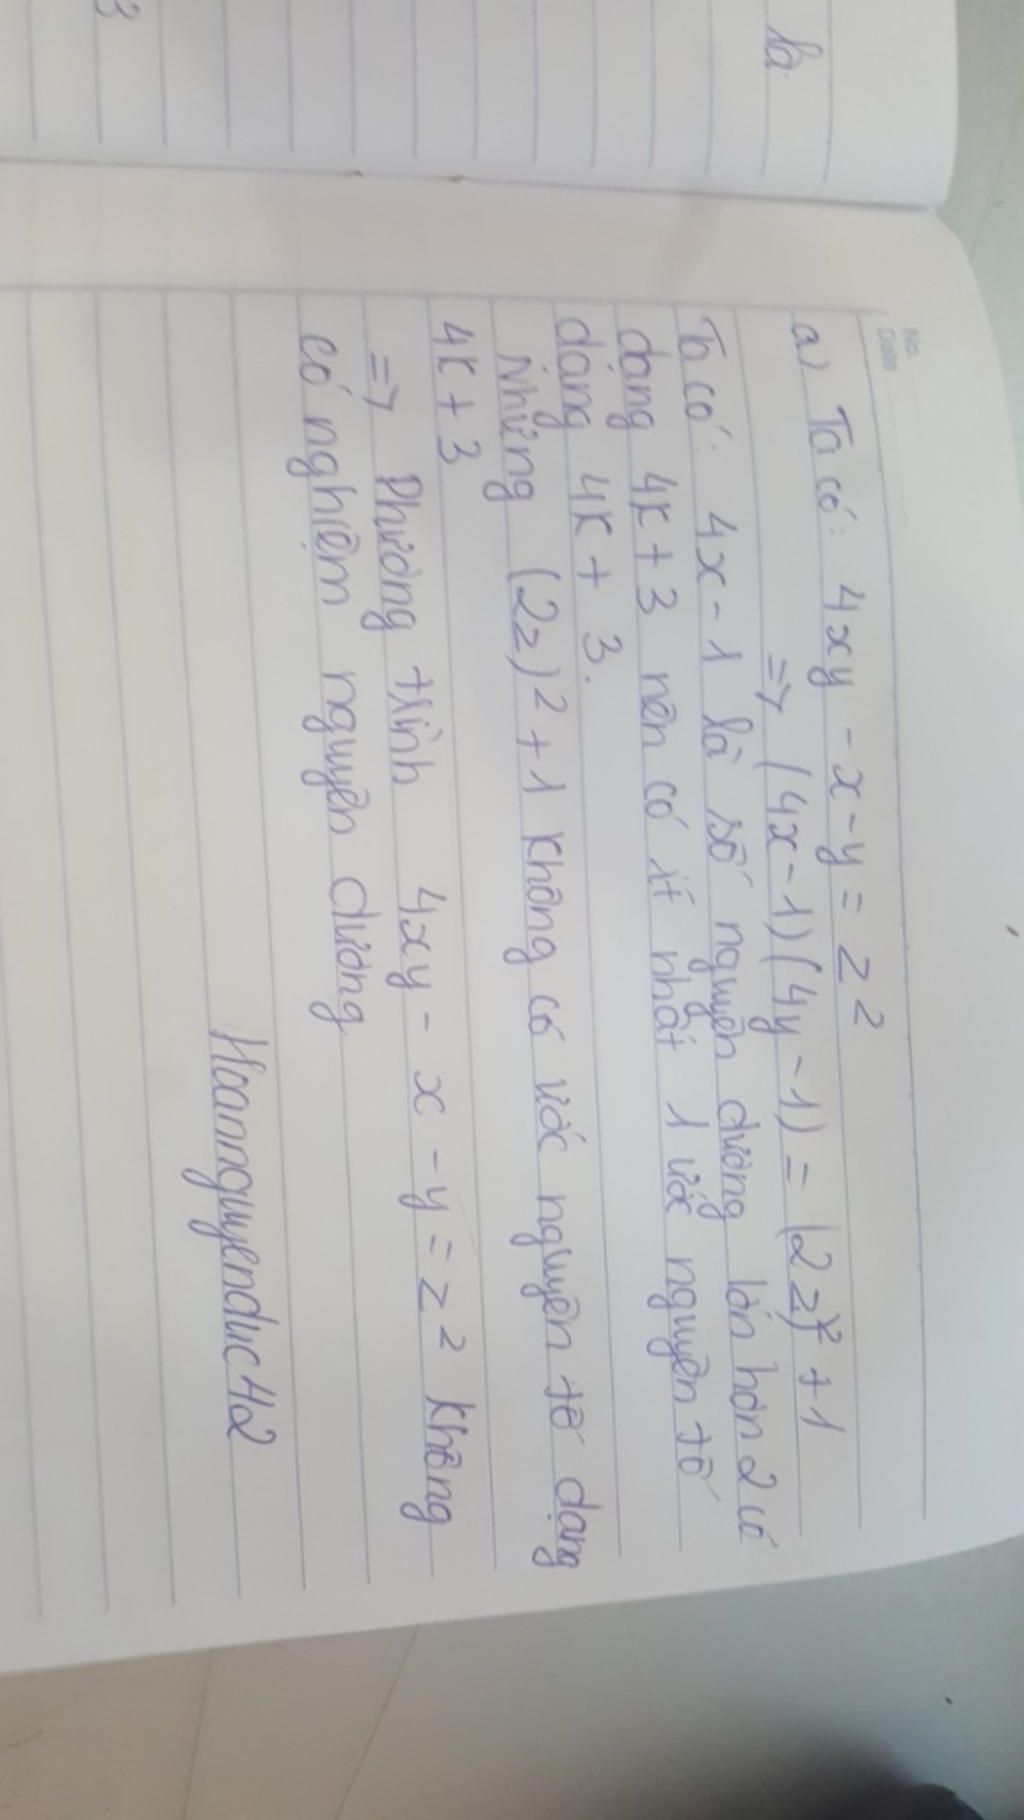 là
3
No.
Date
a) Ta có: 4xy - x - y = z²
=> (4x - 1)(4y - 1) = (2z)² + 1
Ta có: 4x - 1 là số nguyên dương lớn hơn 2 có
dạng 4k + 3 nên có ít nhất 1 ước nguyên tố
dạng 4k + 3.
Nhưng (2z)² + 1 không có ước nguyên tố dạng
4k + 3
=> Phương trình 4xy - x - y = z² không
có nghiệm nguyên dương
Hoangnguyenduc42